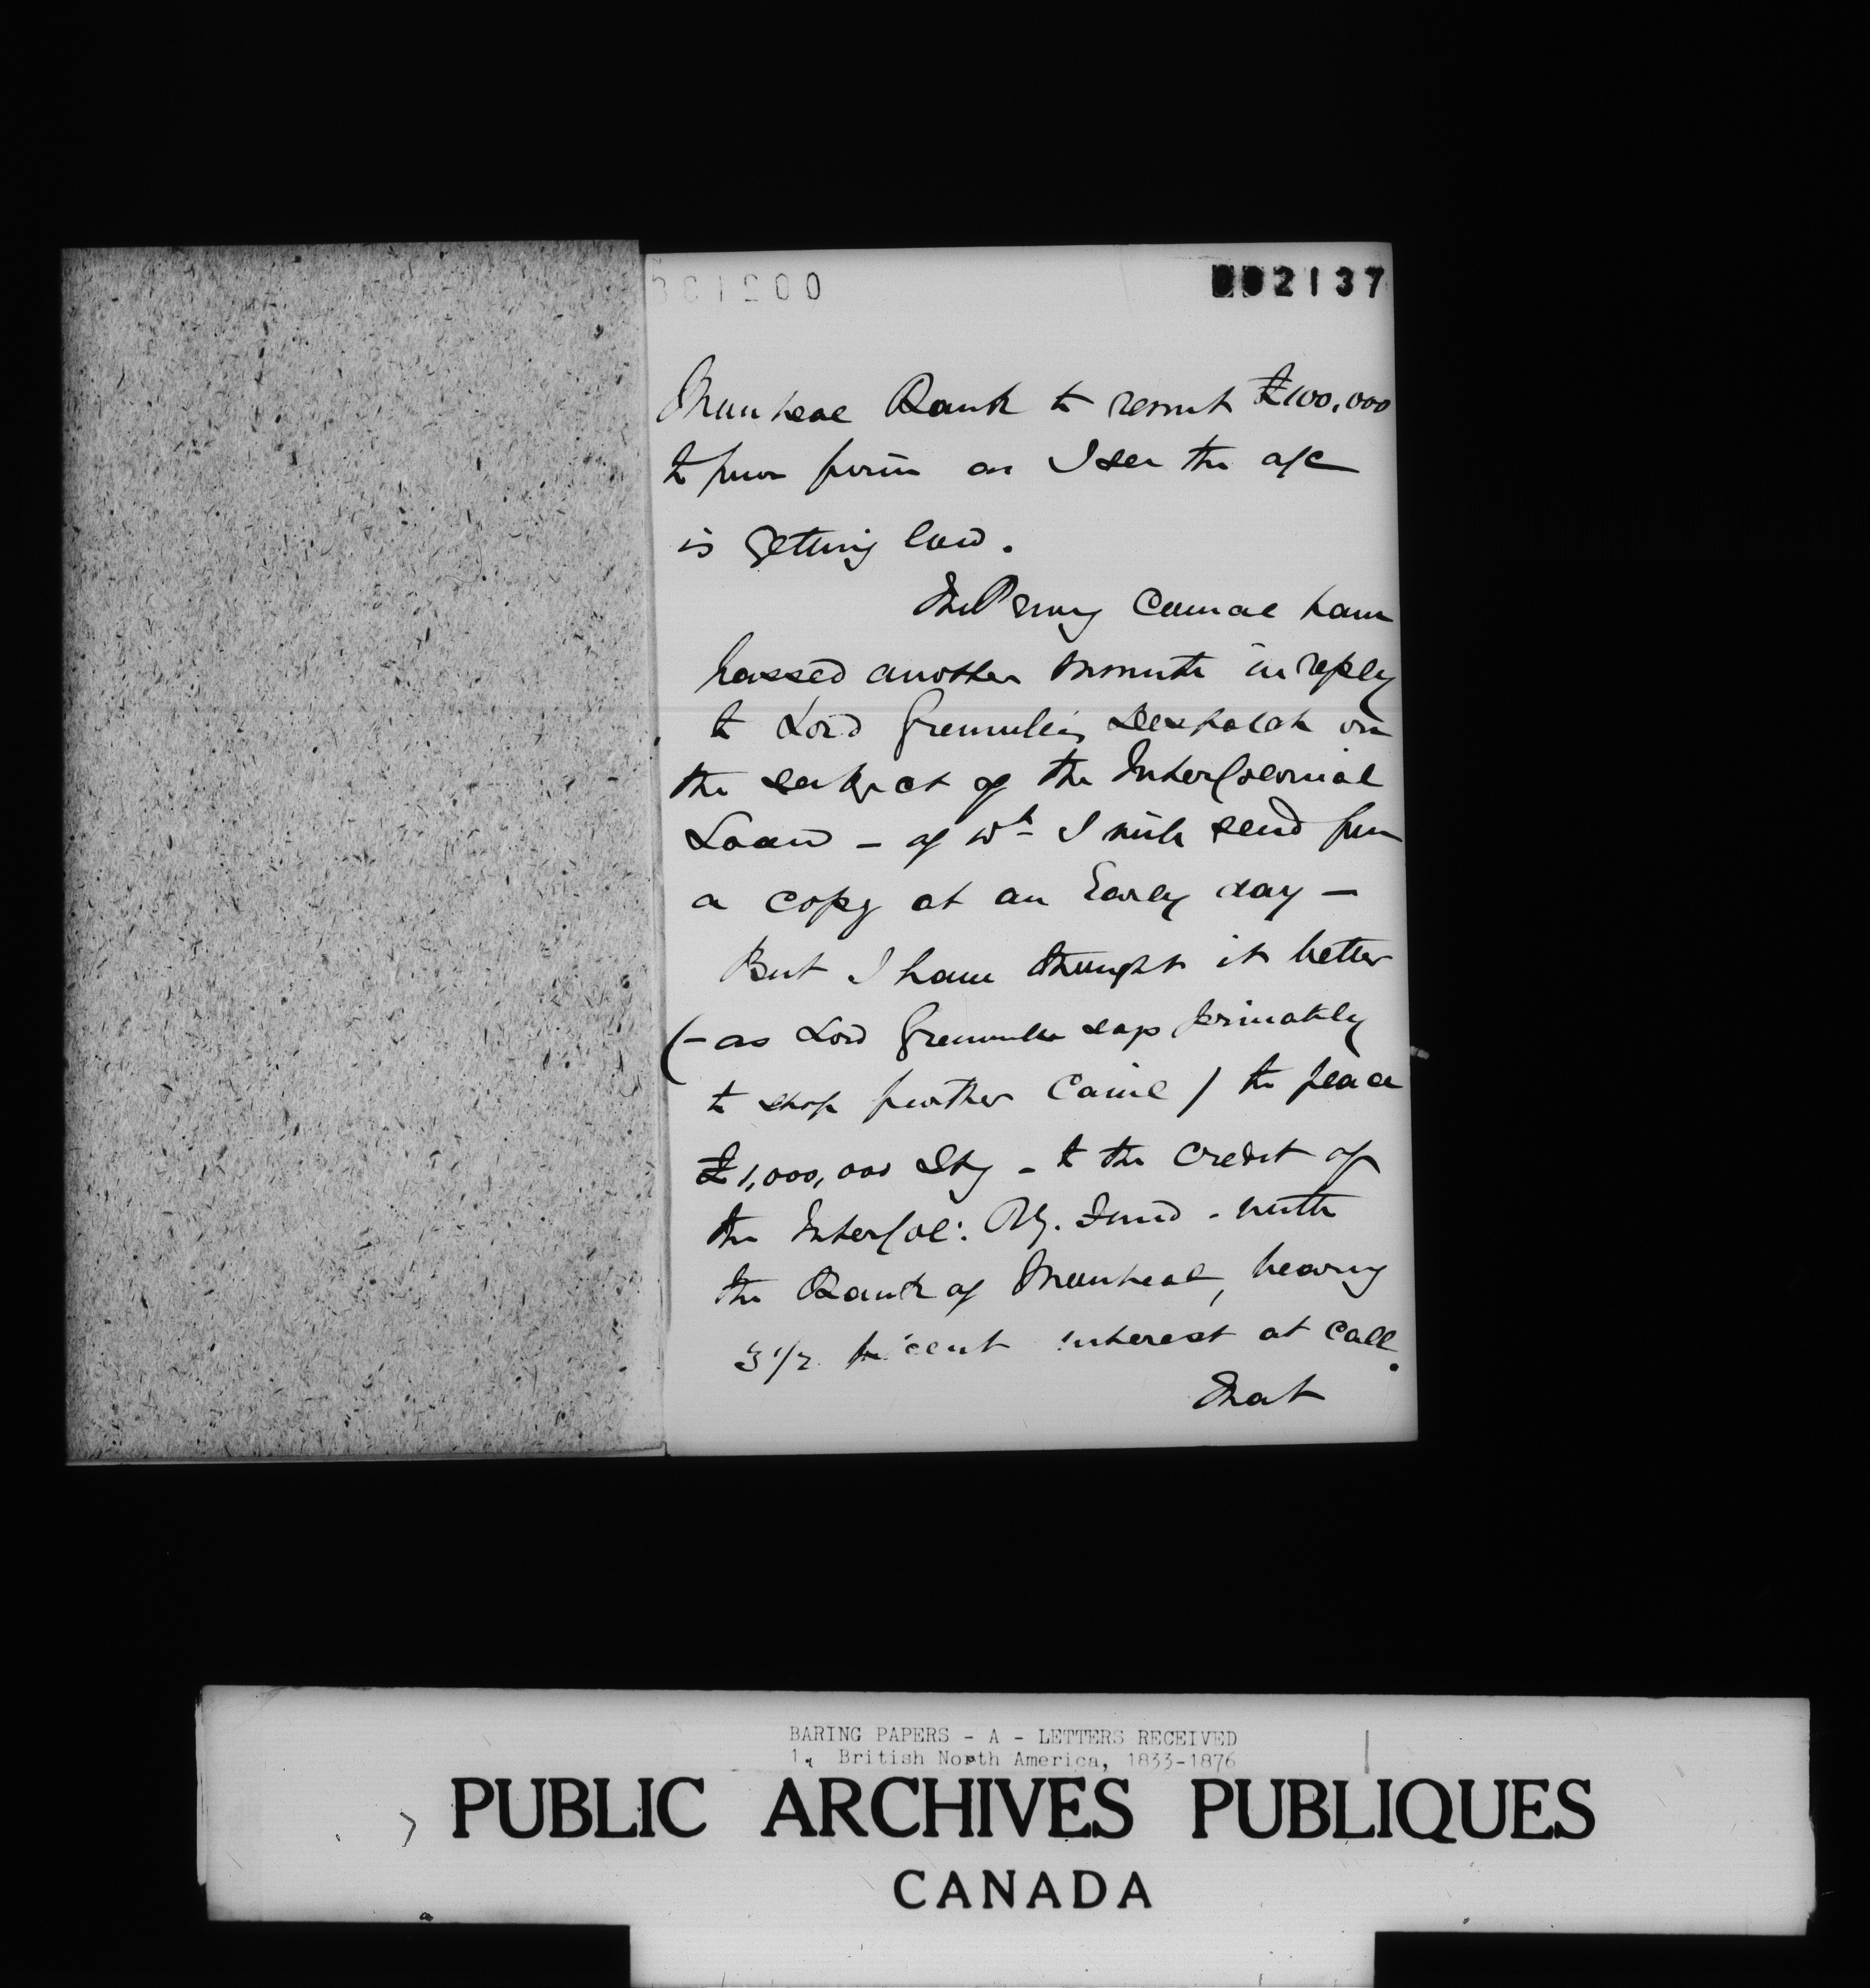 002137
Montreal Bank to remit £100,000
to your firm as I see the a/c
is getting low.
The Privy Council have
passed another Minute in reply
to Lord Granville's Despatch on
the subject of the InterColonial
Loan – of wh I will send you
a copy at an Early day –
But I have thought it better
(– as Lord Granville says privately
to stop further Cavil) to place
£1,000,000 Stg – to the Credit of
the InterCol: Ry. Fund – with
the Bank of Montreal, bearing
3 1/2 pr cent interest at Call.
That
BARING PAPERS - A - LETTERS RECEIVED
1. British North America, 1833-1876
PUBLIC ARCHIVES PUBLIQUES
CANADA